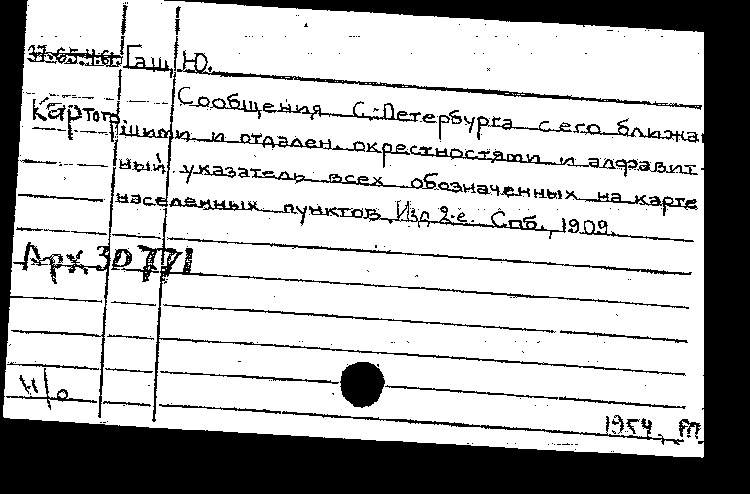 37.65.461. Гаш, Ю.
Сообщения С.-Петербурга с его ближай
Картогр.
шими и отдален. окрестностями и алфавит-
ный указатель всех обозначенных на карте
населенных пунктов. Изд. 2-е. Спб., 1909.
Арх. 30 771
н/о
1954, т.